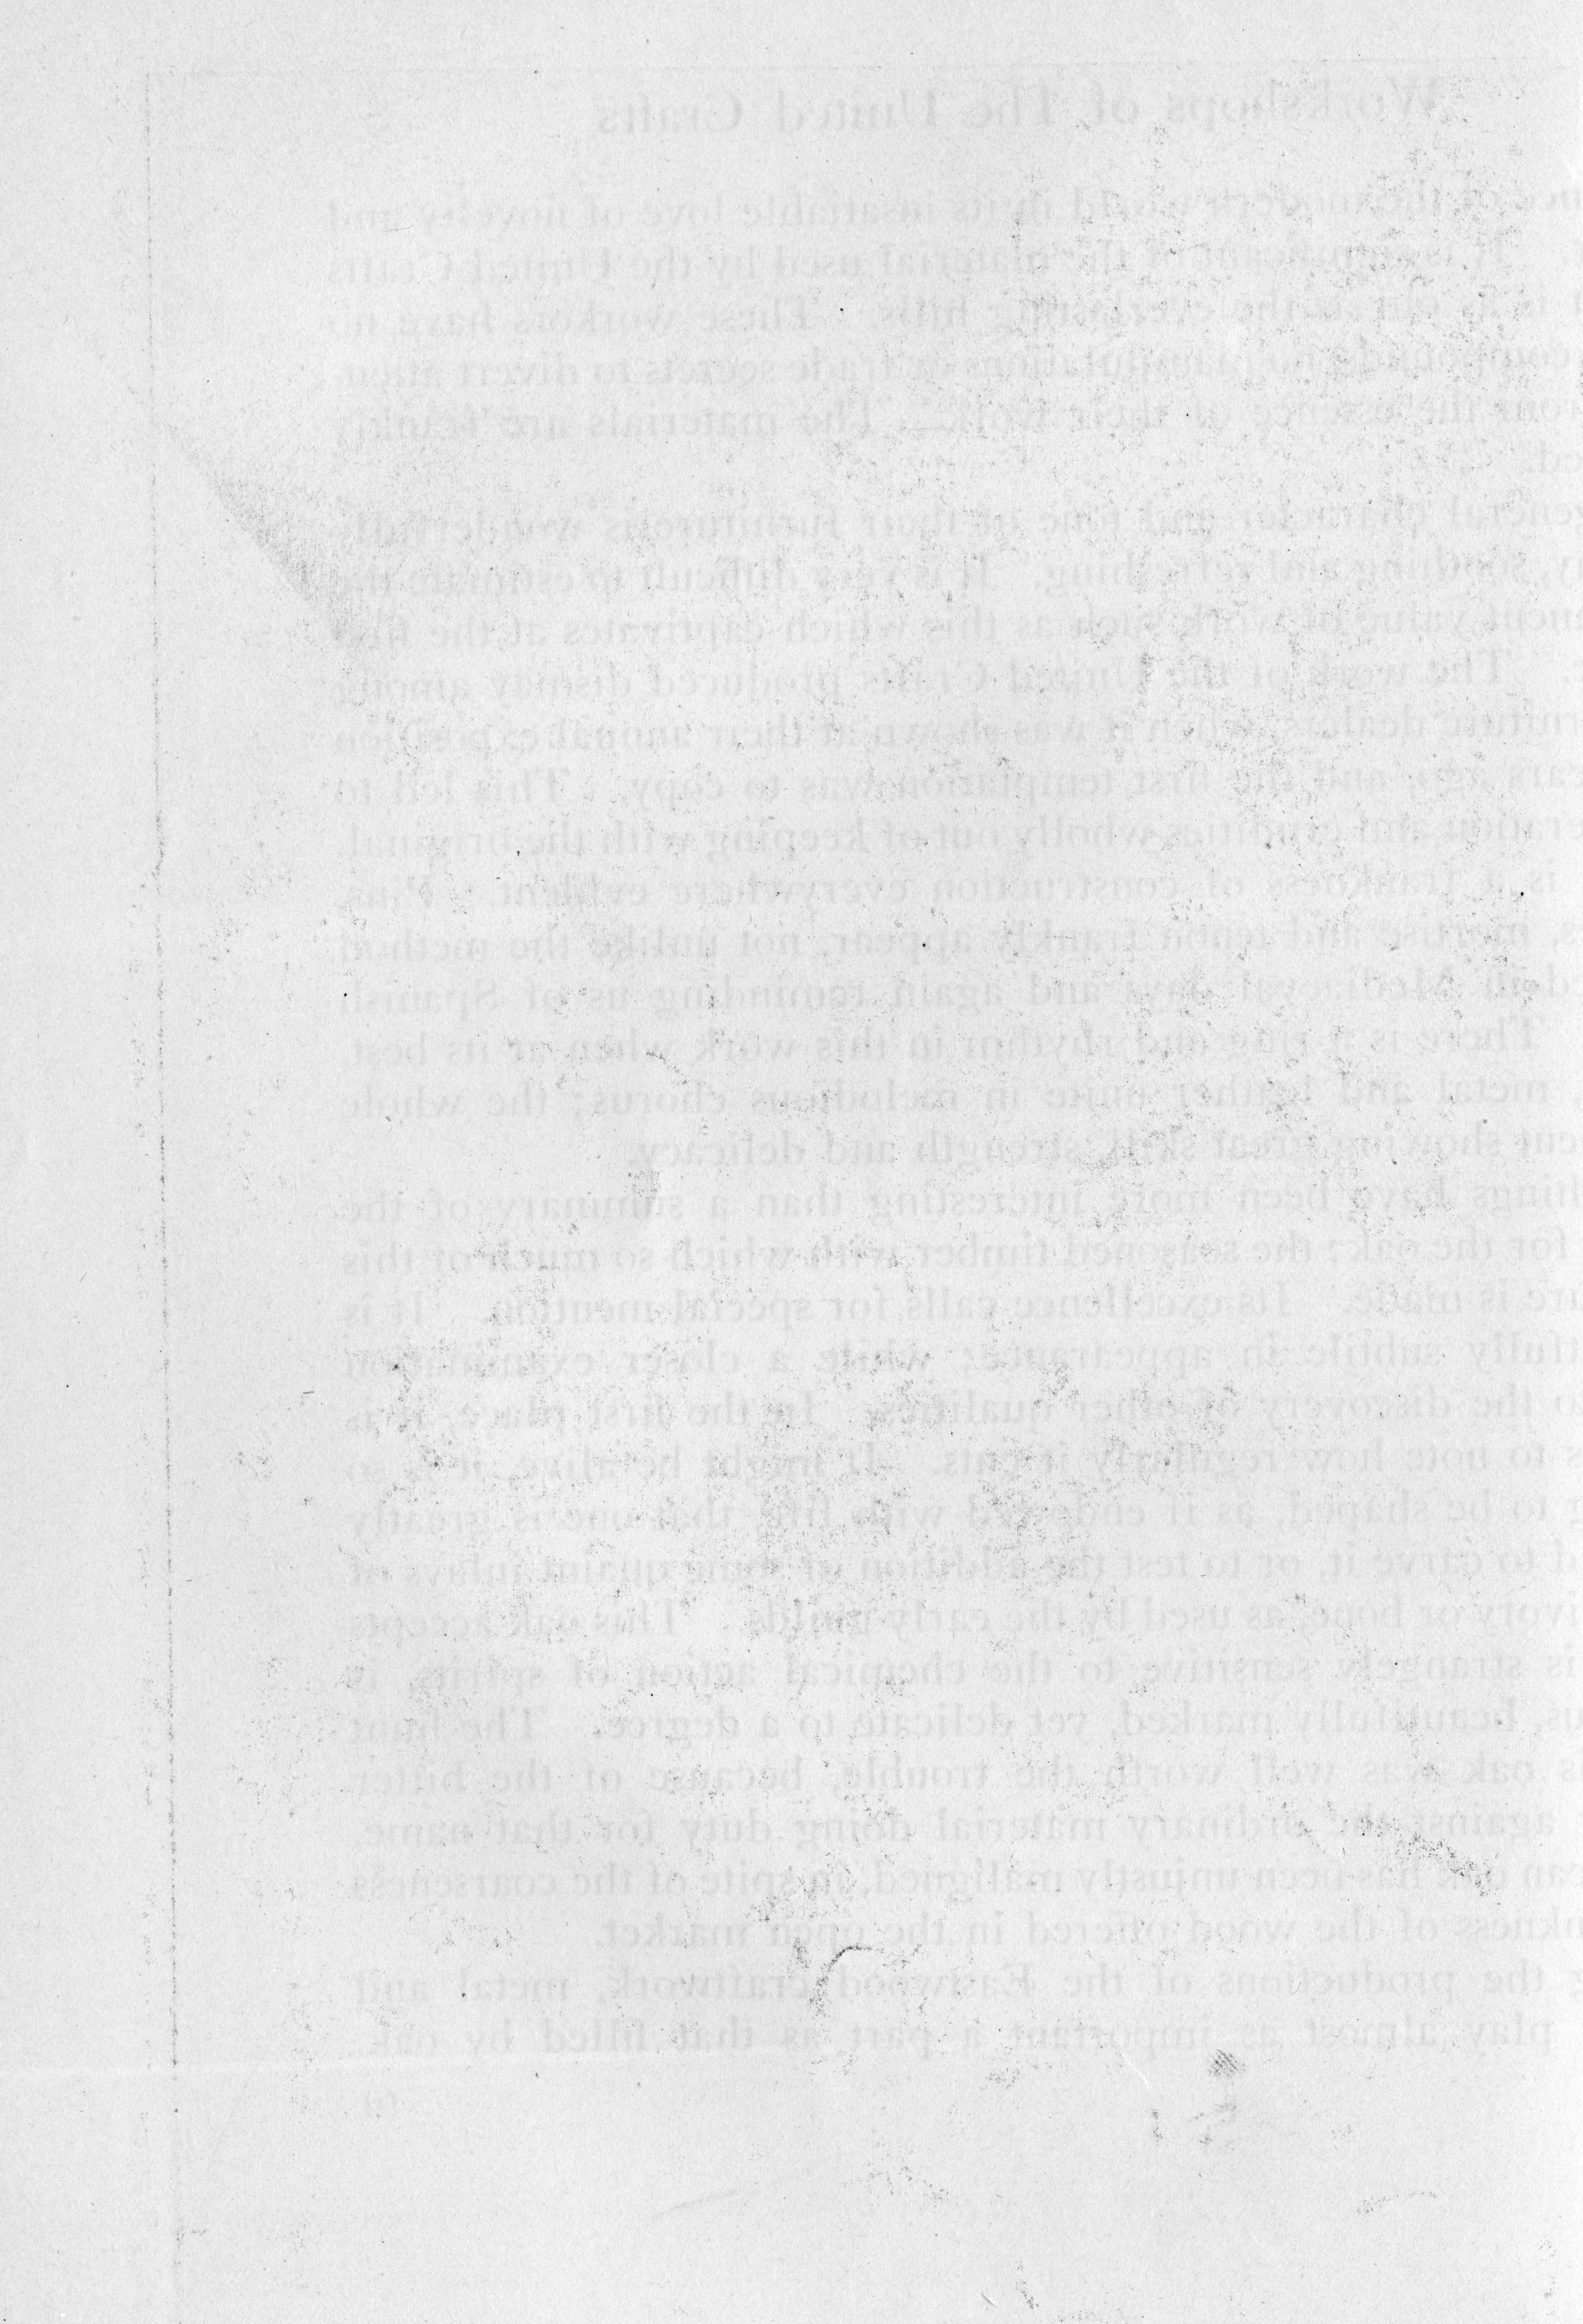 Workshops of The United Crafts
of the modern world in its insatiable love of novelty and
It is significant of the material used by the United Crafts
is as old as the everlasting hills. These workers have no
manipulations or trade secrets to divert atten-
the essence of their work. The materials are frankly
general character and tone of their furniture is wonderfully
soothing and refreshing. It is very difficult to estimate the
value of work such as this which captivates at the first
The work of the United Crafts produced dismay among
dealers, when it was shown at their annual exposition
ago, and the first temptation was to copy. This led to
and crudities wholly out of keeping with the original.
is a frankness of construction everywhere evident. Pins,
mortise and tenon frankly appear, not unlike the method
in Mediaeval days and again reminding us of Spanish
There is a ring and rhythm in this work when at its best.
metal and leather unite in melodious chorus; the whole
showing great skill, strength and delicacy.
things have been more interesting than a summary of the
for the oak; the seasoned timber with which so much of this
is made. Its excellence calls for special mention. It is
subtile in appearance; while a closer examination
to the discovery of other qualities. In the first place, it is
to note how regularly it cuts. It might be alive, it is so
to be shaped, as if endowed with life, that one is greatly
to carve it, or to test the addition of some quaint inlays of
ivory or bone, as used by the early guilds. This oak accept-
is strangely sensitive to the chemical action of spirits, is
beautifully marked, yet delicate to a degree. The hunt
oak was well worth the trouble, because of the bitter
against the ordinary material doing duty for that name.
oak has been unjustly malligned, in spite of the coarseness
of the wood offered in the open market.
the productions of the Eastwood craftwork, metal and
play almost as important a part as that filled by oak.